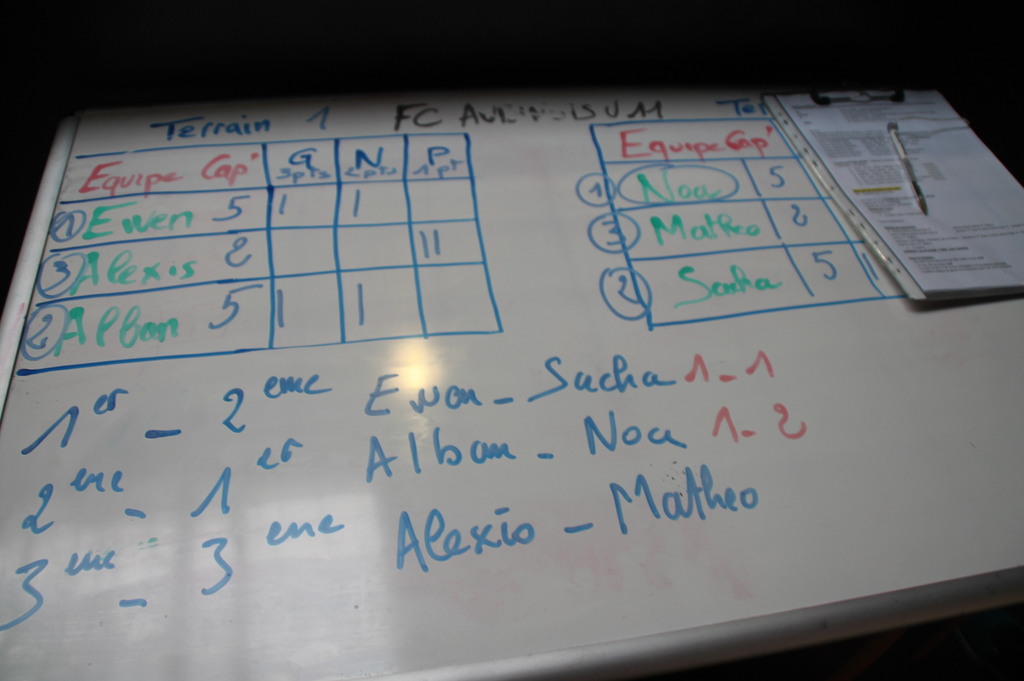 Terrain 1 FC U11
Equipe Cap' G 3pts N 2pts P 1pt
1 Ewen 5 I I
3 Alexis 2 II
2 Alban 5 I I
Equipe Cap'
1 Noa 5
3 Matheo 2
2 Sacha 5 I
1er - 2eme Ewen - Sacha 1-1
2eme - 1er Alban - Noa 1-2
3eme - 3eme Alexis - Matheo